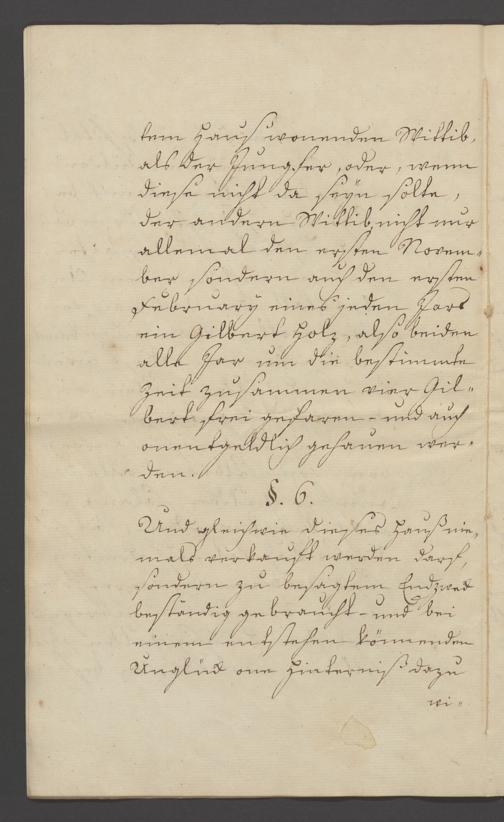 tem Hauß wonenden Wittib,
als der Jungfer, oder, wenn
diese nicht da seyn solte,
der andern Wittib, nicht nur
allemal den ersten Novem-
ber sondern auch den ersten
February eines jeden Jars
ein Gilbert Holz, also beiden
alle Jar um die bestimmte
Zeit zusammen vier Gil-
bert frei gefaren - und auch
onentgeldlich gehauen wer-
den.
§. 6.
Und gleichwie dieses Hauß nie-
mals verkauft werden darf,
sondern zu besagtem Endzwek
beständig gebraucht - und bei
einem entstehen könnenden
Unglük one Hinterniß dazu
wi-